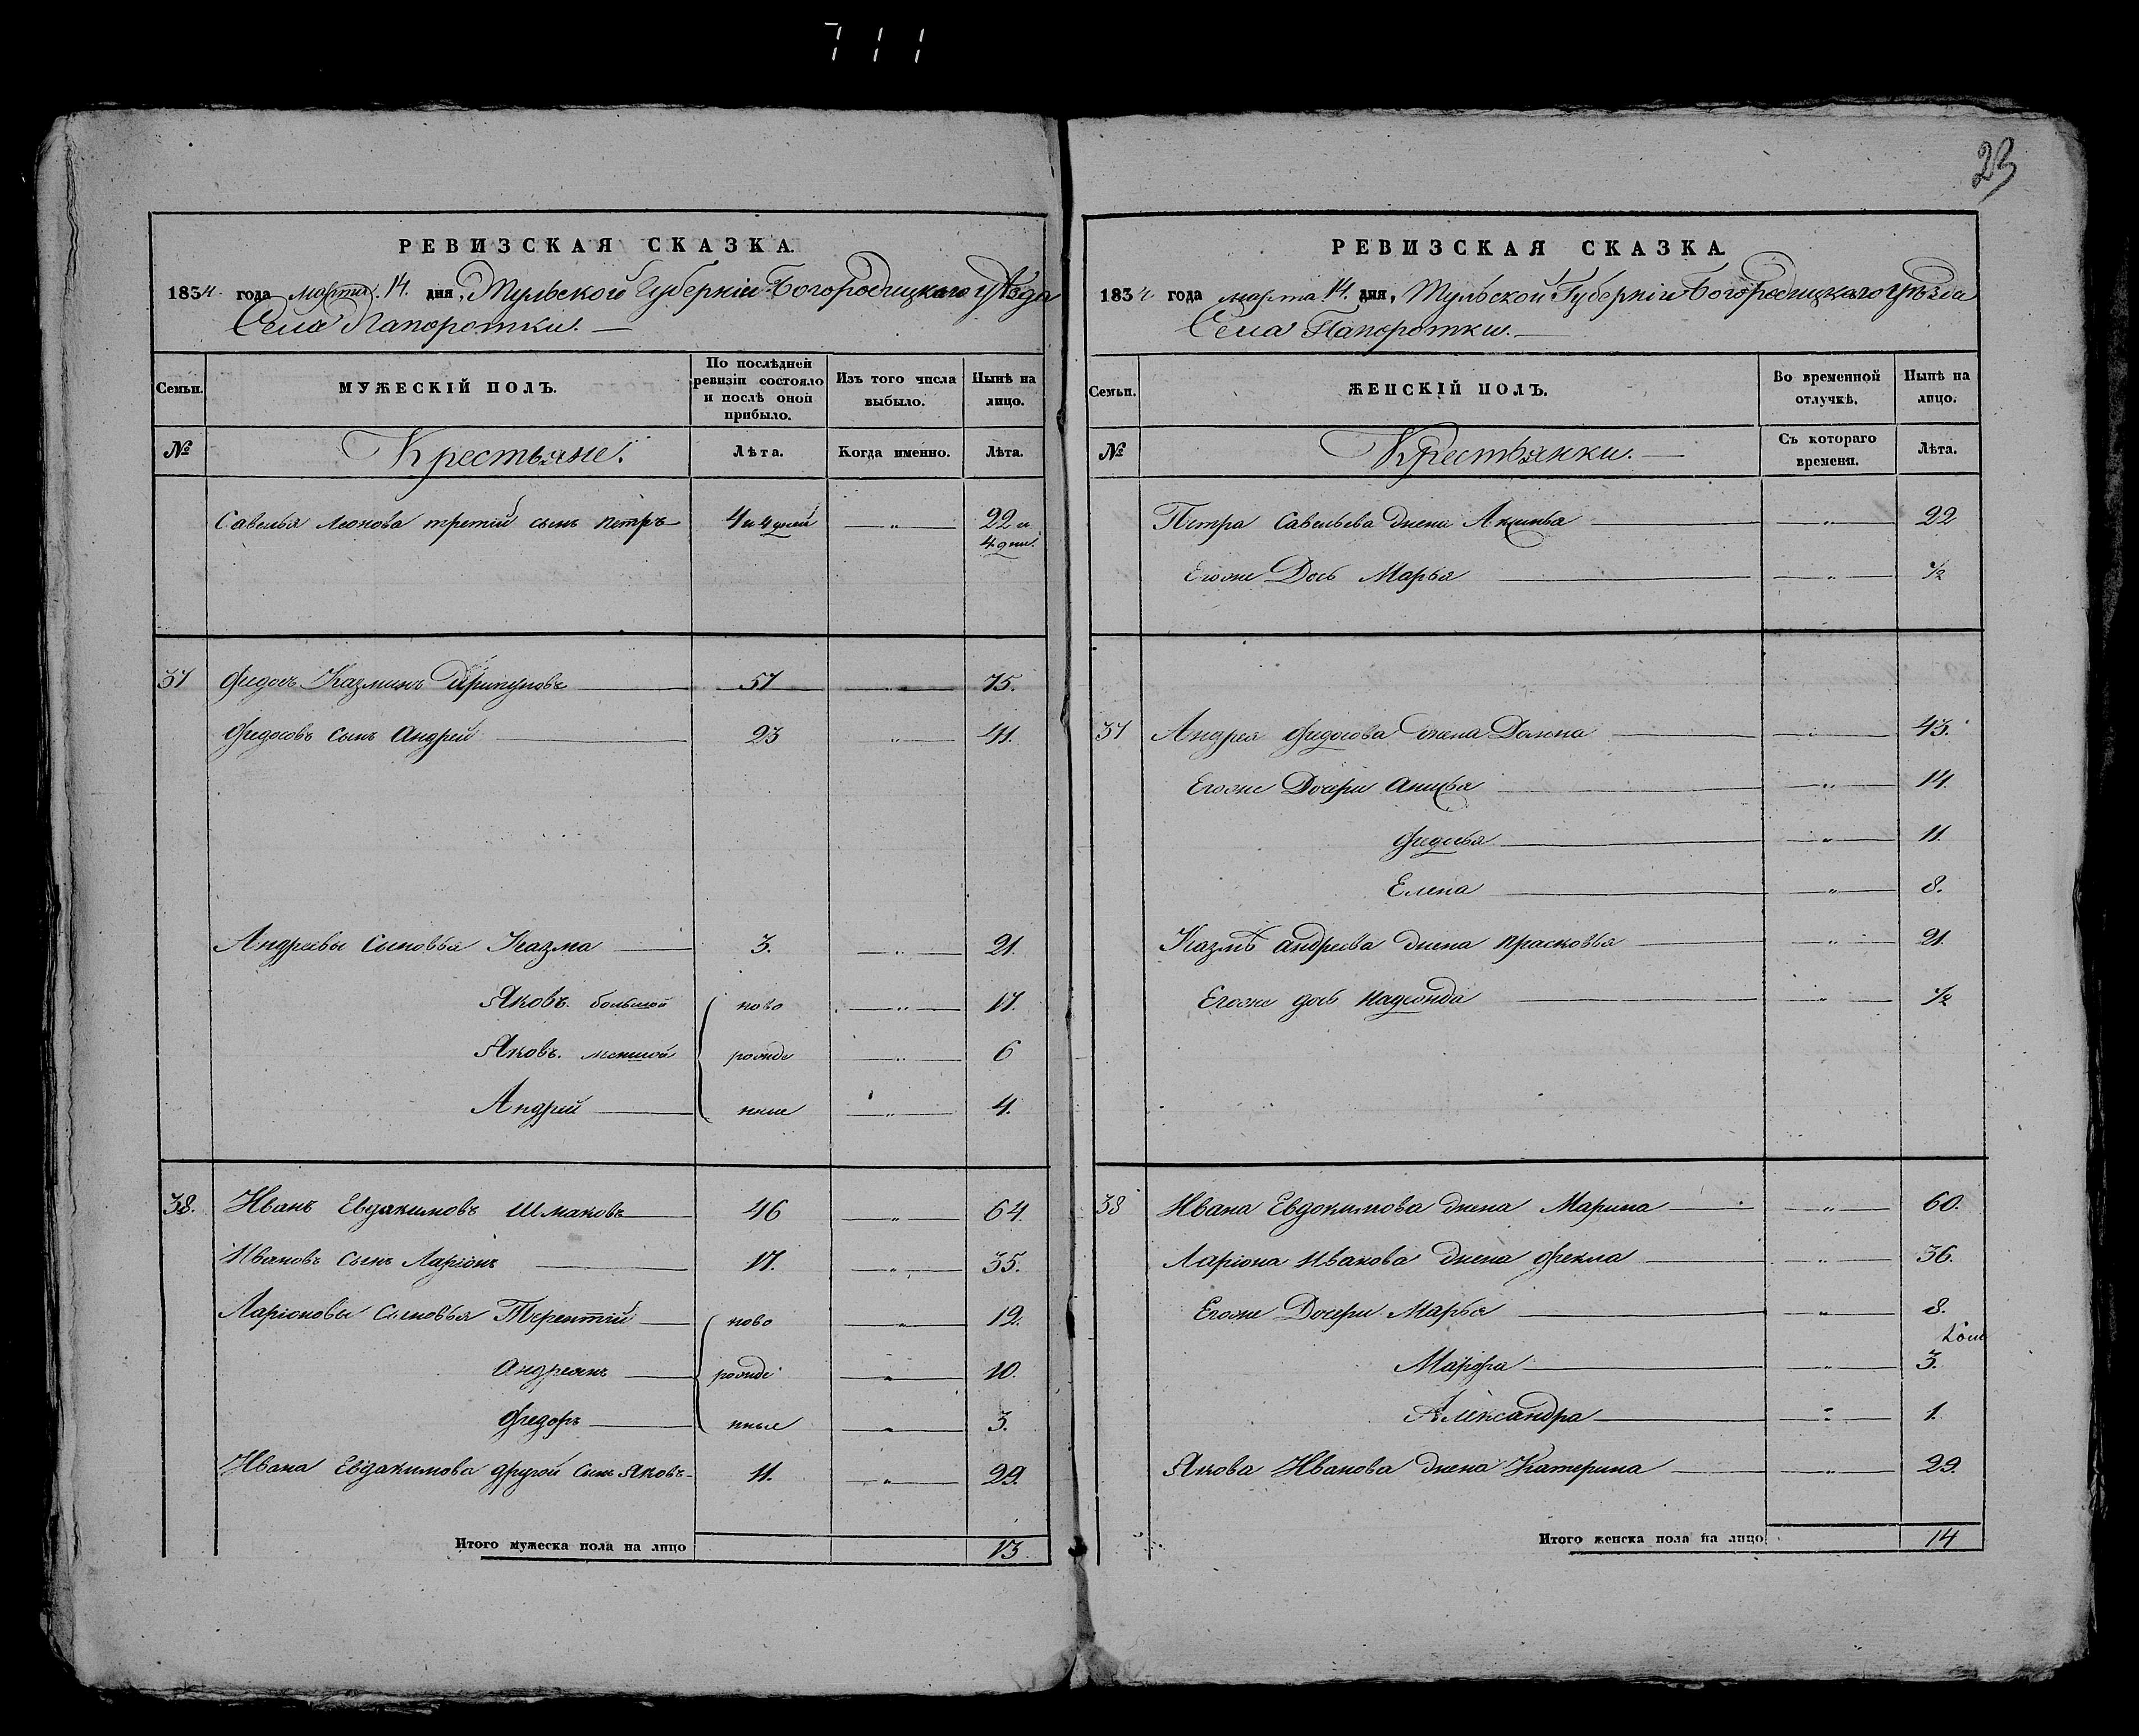 711
23
РЕВИЗСКАЯ СКАЗКА.
1834 года марта 14. дня, Тульской Губерніи Богородицкаго уѣзда
Села Папоротки.
Семьи. МУЖЕСКІЙ ПОЛЪ. По послѣдней ревизіи состояло и послѣ оной прибыло. Изъ того числа выбыло. Нынѣ на лицо.
№ Крестьяне. Лѣта. Когда именно. Лѣта.
Савелья Леонова третій сынъ Петръ 4 и 4 дней — „ — 22 и 4 дни.
37 Федосъ Казминъ 57 — „ — 75.
Федосовъ сынъ Андрей 23 — „ — 41.
Андреевы сыновья Казма 3. — „ — 21.
Яковъ большой ново — „ — 17.
Яковъ меншой рожде — „ — 6
Андрей ные — „ — 4.
38. Иванъ Евдакимовъ Шмаковъ 46 — „ — 64
Ивановъ сынъ Ларіонъ 17. — „ — 35.
Ларіоновы сыновья Терентій ново — „ — 12.
Андреянъ рожде — „ — 10.
Федоръ нные — „ — 3.
Ивана Евдакимова другой сынъ Яковъ 11. — „ — 29.
Итого мужеска пола на лицо 13
РЕВИЗСКАЯ СКАЗКА.
1834 года марта 14. дня, Тульской Губерніи Богородицкаго уѣзда
Села Папоротки.
Семьи. ЖЕНСКІЙ ПОЛЪ. Во временной отлучкѣ. Нынѣ на лицо.
№ Крестьянки. Съ котораго времени. Лѣта.
Петра Савельева жена Аксинья — „ — 22
Егоже Дочь Марья — „ — 1/2
37 Андрея Федосова жена — „ — 43.
Егоже Дочери — „ — 14.
Федосья — „ — 11.
Елена — „ — 8.
Казмы Андреева жена Прасковья — „ — 21.
Егоже дочь Надежда — „ — 1/2
38 Ивана Евдокимова жена Марина — „ — 60.
Ларіона Иванова жена Фекла — „ — 36.
Егоже Дочери Марья — „ — 8.
Марфа — „ — 3.
Александра — „ — 1.
Якова Иванова жена Катерина — „ — 29.
Итого женска пола на лицо 14